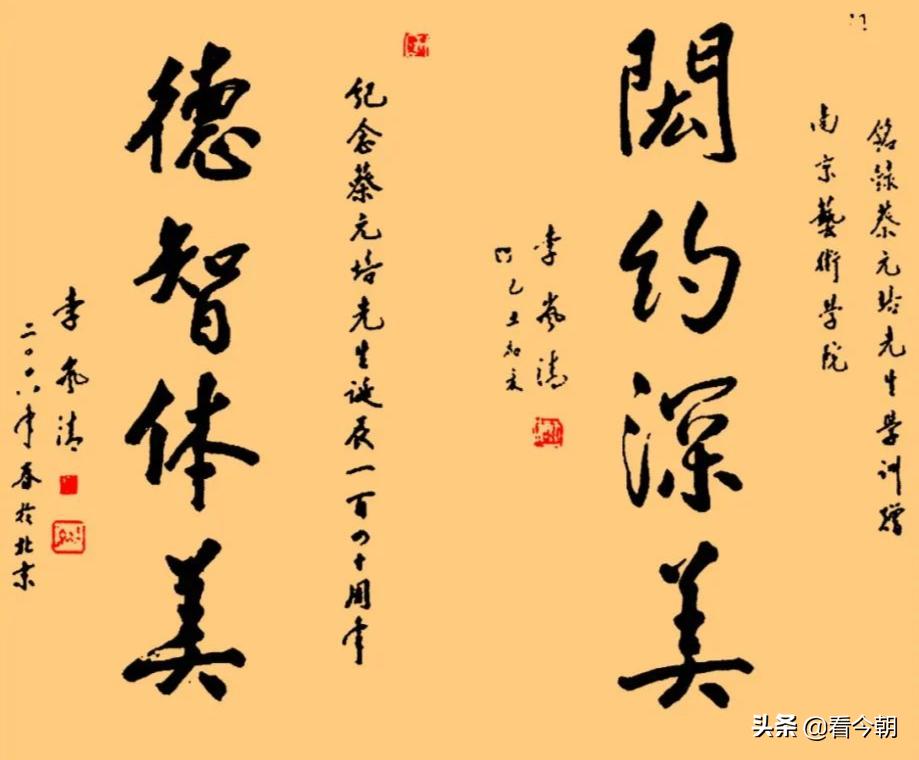 铭録蔡元培先生學训赠
南京藝術学院
閎约深美
李岚清
己丑初夏
纪念蔡元培先生诞辰一百四十周年
德智体美
李岚清
二〇〇八年春於北京
头条 @看今朝